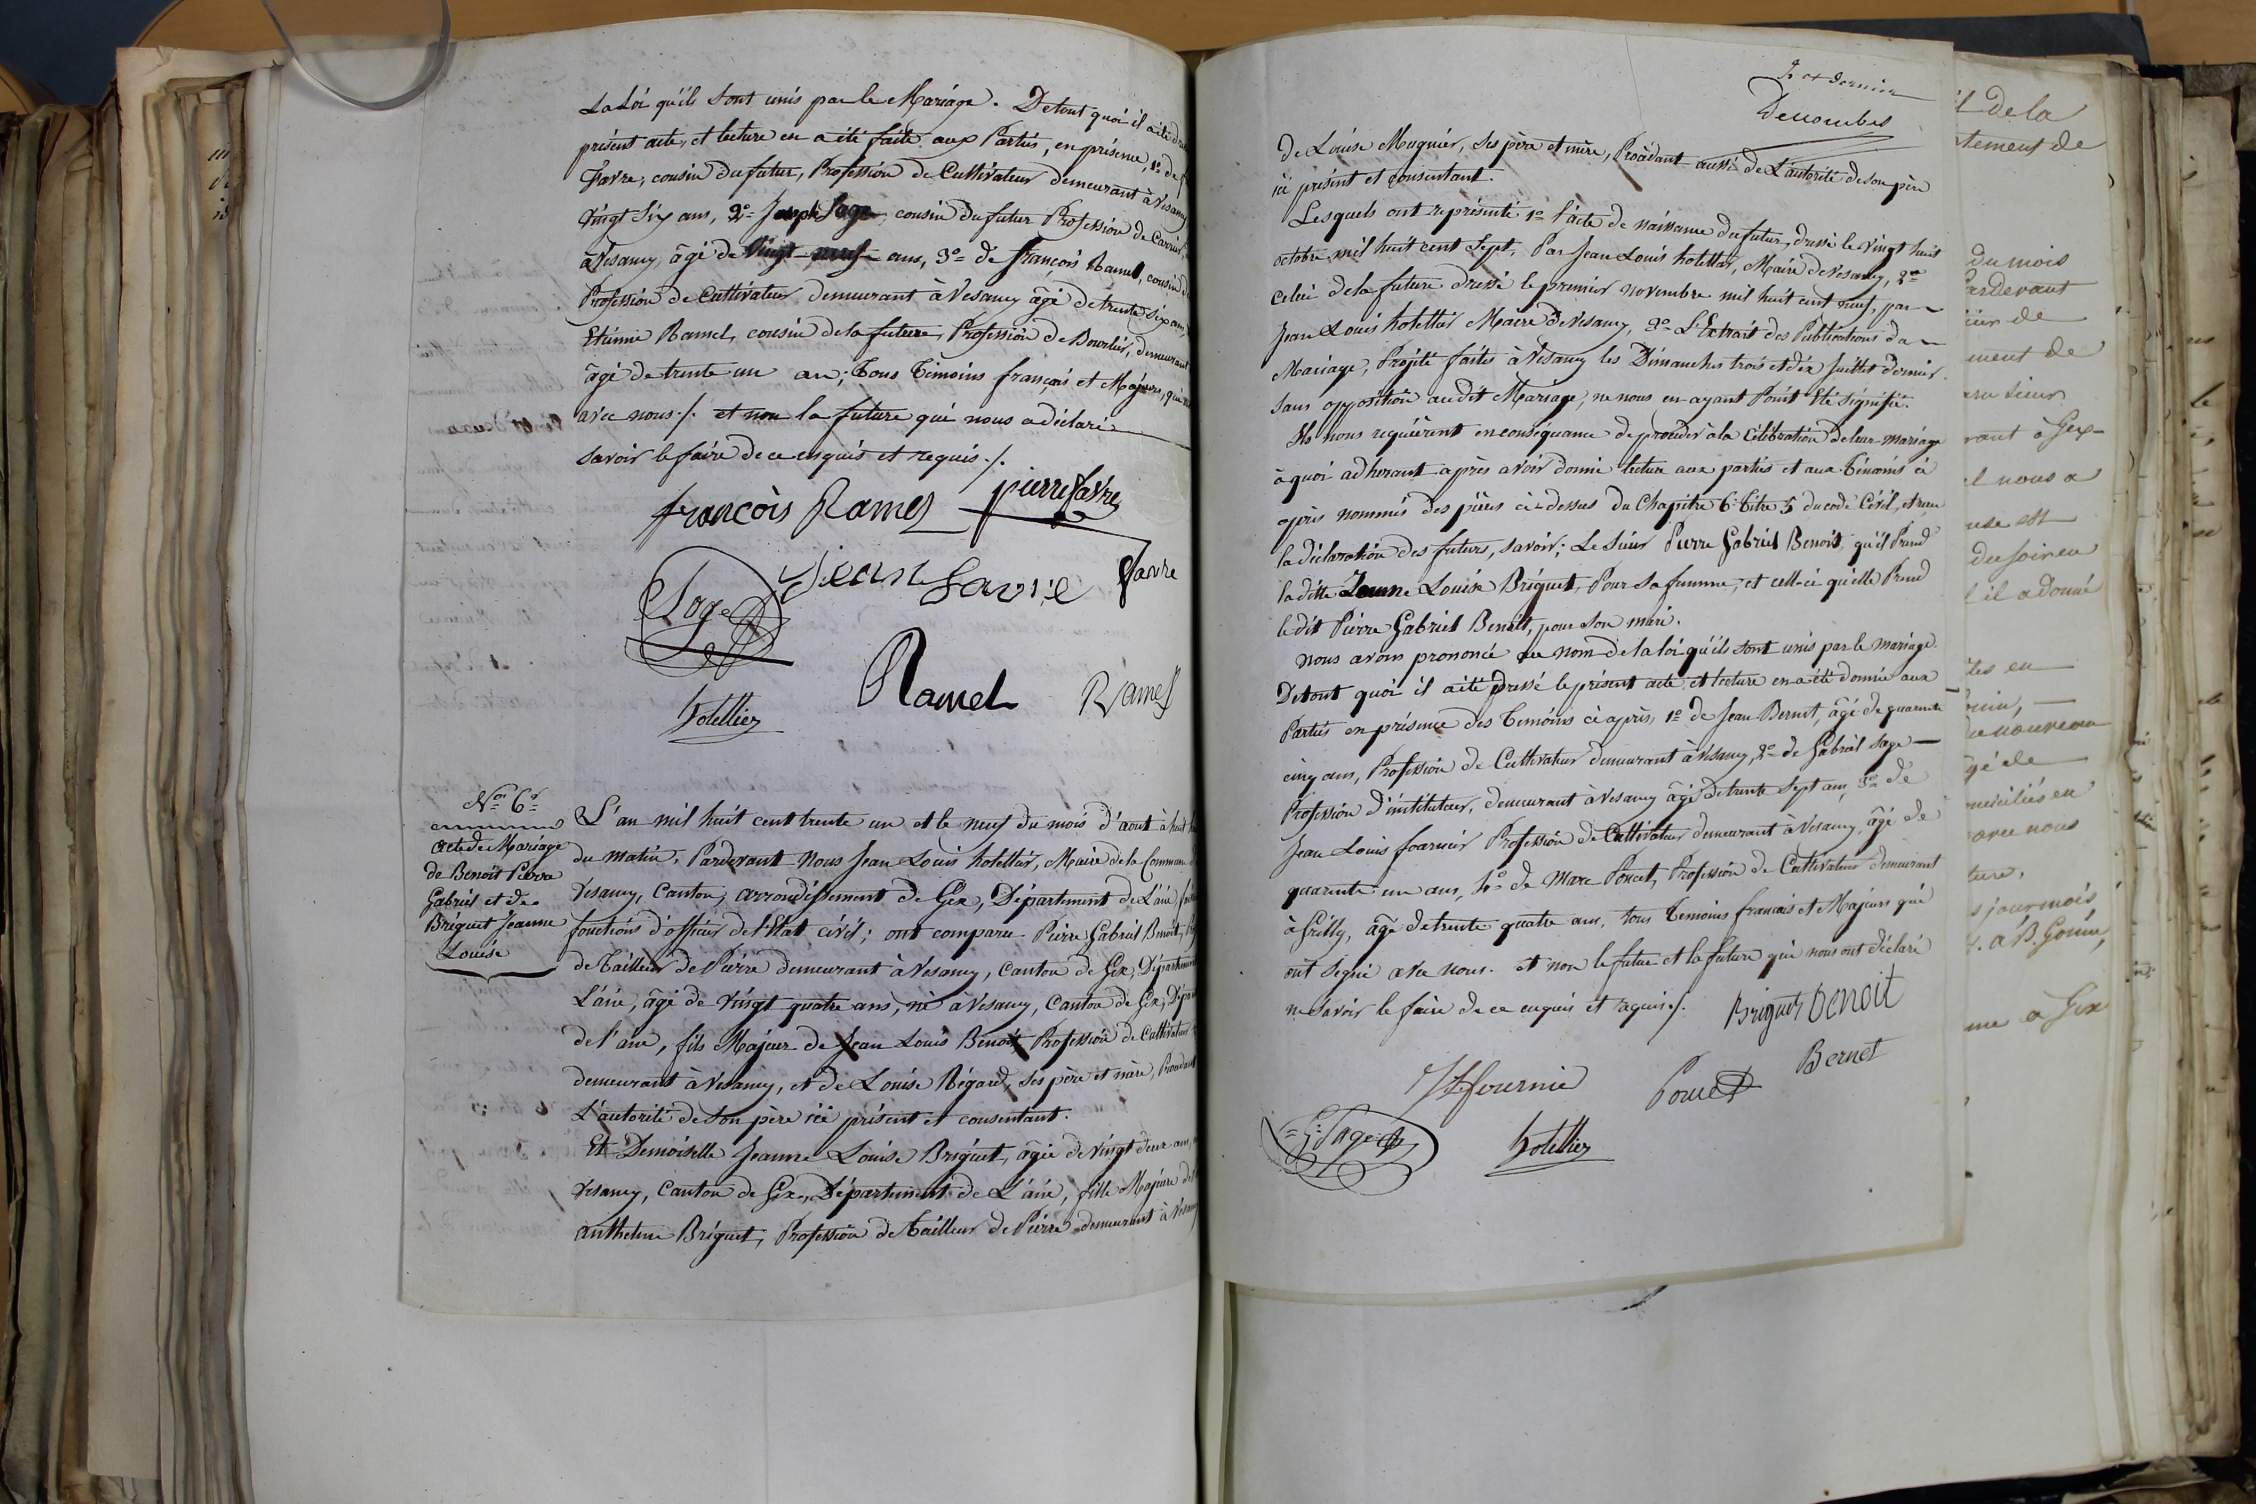 La Loi qu'ils sont unis par le Mariage. De tout quoi il a été
présent acte, et lecture en a été faite aux Parties, en présence, 1o de
Favre, cousin du futur, Profession de Cultivateur demeurant à Vesancy
vingt six ans, 2o Joseph Sage, cousin du futur Profession de Carrier,
à Vesancy, âgé de vingt neuf ans, 3o de françois Ramel, cousin
Profession de Cultivateur demeurant à Vesancy âgé de trente six ans,
Etienne Ramel, cousin de la future, Profession de Bourlier, demeurant
âgé de trente un an; Tous Témoins français et Majeurs, qui
avec nous ./. et non la future qui nous a déclaré
savoir le faire de ce enquis et requis ./.
françois Ramel pierre favre
Jean favre favre
Sage
Ramel Ramel
hotellier
No 6e
acte de Mariage
de Benoit Pierre
Gabriel et de
Briguet Jeanne
Louise
L'an mil huit cent trente un et le neuf du mois d'aout à huit
du matin, Pardevant Nous Jean Louis hotellier, Maire de la Commune
Vesancy, Canton, arrondissement de Gex, Département de L'ain,
fonctions d'officier de l'Etat civil; ont comparu Pierre Gabriel Benoit,
de Tailleur de Pierre demeurant à Vesancy, canton de Gex, Département
L'ain, âgé de vingt quatre ans, né à Vesancy, Canton de Gex,
de l'ain, fils Majeur de Jean Louis Benoit Profession de Cultivateur
demeurant à Vesancy, et de Louise Régard, ses père et mère, Procédant
L'autorité de son père ici présent et consentant.
Et Demoiselle Jeanne Louise Briguet, âgée de vingt deux ans,
Vesancy, Canton de Gex, Département de L'ain, fille Majeure de
anthelme Briguet, Profession de Tailleur de Pierre demeurant à Vesancy
et dernier
de Louise Mugnier, ses père et mère, Procédant aussi de L'autorité de son père
ici présent et consentant.
Lesquels ont représenté 1o l'acte de naissance du futur, dressé le vingt huit
octobre mil huit cent Sept, Par Jean Louis hotellier, Maire de Vesancy, 2o
Celui de la future dressé le premier novembre mil huit cent neuf, par
Jean Louis hotellier Maire de Vesancy, 3o L'Extrait des Publications de
Mariage, Projeté faites à Vesancy les Dimanches trois et dix Juillet dernier
sans opposition audit Mariage, ne nous en ayant Point Eté signifié.
Ils nous requièrent en conséquence de procéder à la Célébration de leur mariage
à quoi adherant après avoir donné lecture aux parties et aux Témoins ci
après nommés des pièces ci-dessus du Chapitre 6 Titre 5 du code Civil, et reçu
la déclaration des futurs, savoir; Le Sieur Pierre Gabriel Benoit, qu'il Prend
la ditte Jeanne Louise Briguet, Pour sa femme, et celle-ci qu'elle Prend
le dit Pierre Gabriel Benoit, pour son mari.
Nous avons prononcé au nom de la loi qu'ils sont unis par le mariage.
De tout quoi il a été dressé le présent acte, et lecture en a été donnée aux
Parties en présence des Temoins ci après, 1o de Jean Bernet, âgé de quarante
cinq ans, Profession de Cultivateur demeurant à Vesancy, 2o de Gabriel Sage
Profession d'instituteur, demeurant à Vesancy âgé de trente sept ans, 3o de
Jean Louis fournier Profession de Cultivateur demeurant à Vesancy, âgé de
quarante un ans, 4o de Marc Poncet, Profession de Cultivateur demeurant
à Grilly, âgé de trente quatre ans, tous Temoins francais et Majeurs qui
ont signé avec nous. et non le futur et la future qui nous ont déclaré
ne savoir le faire de ce enquis et requis ./. Briguet benoit
fournie Poncet Bernet
G. Sage
hotellier
l de la
tement de
du mois
Pardevant
ment de
rant à Gex
l nous a
du soir en
l il a donné
avec nous
à Gex